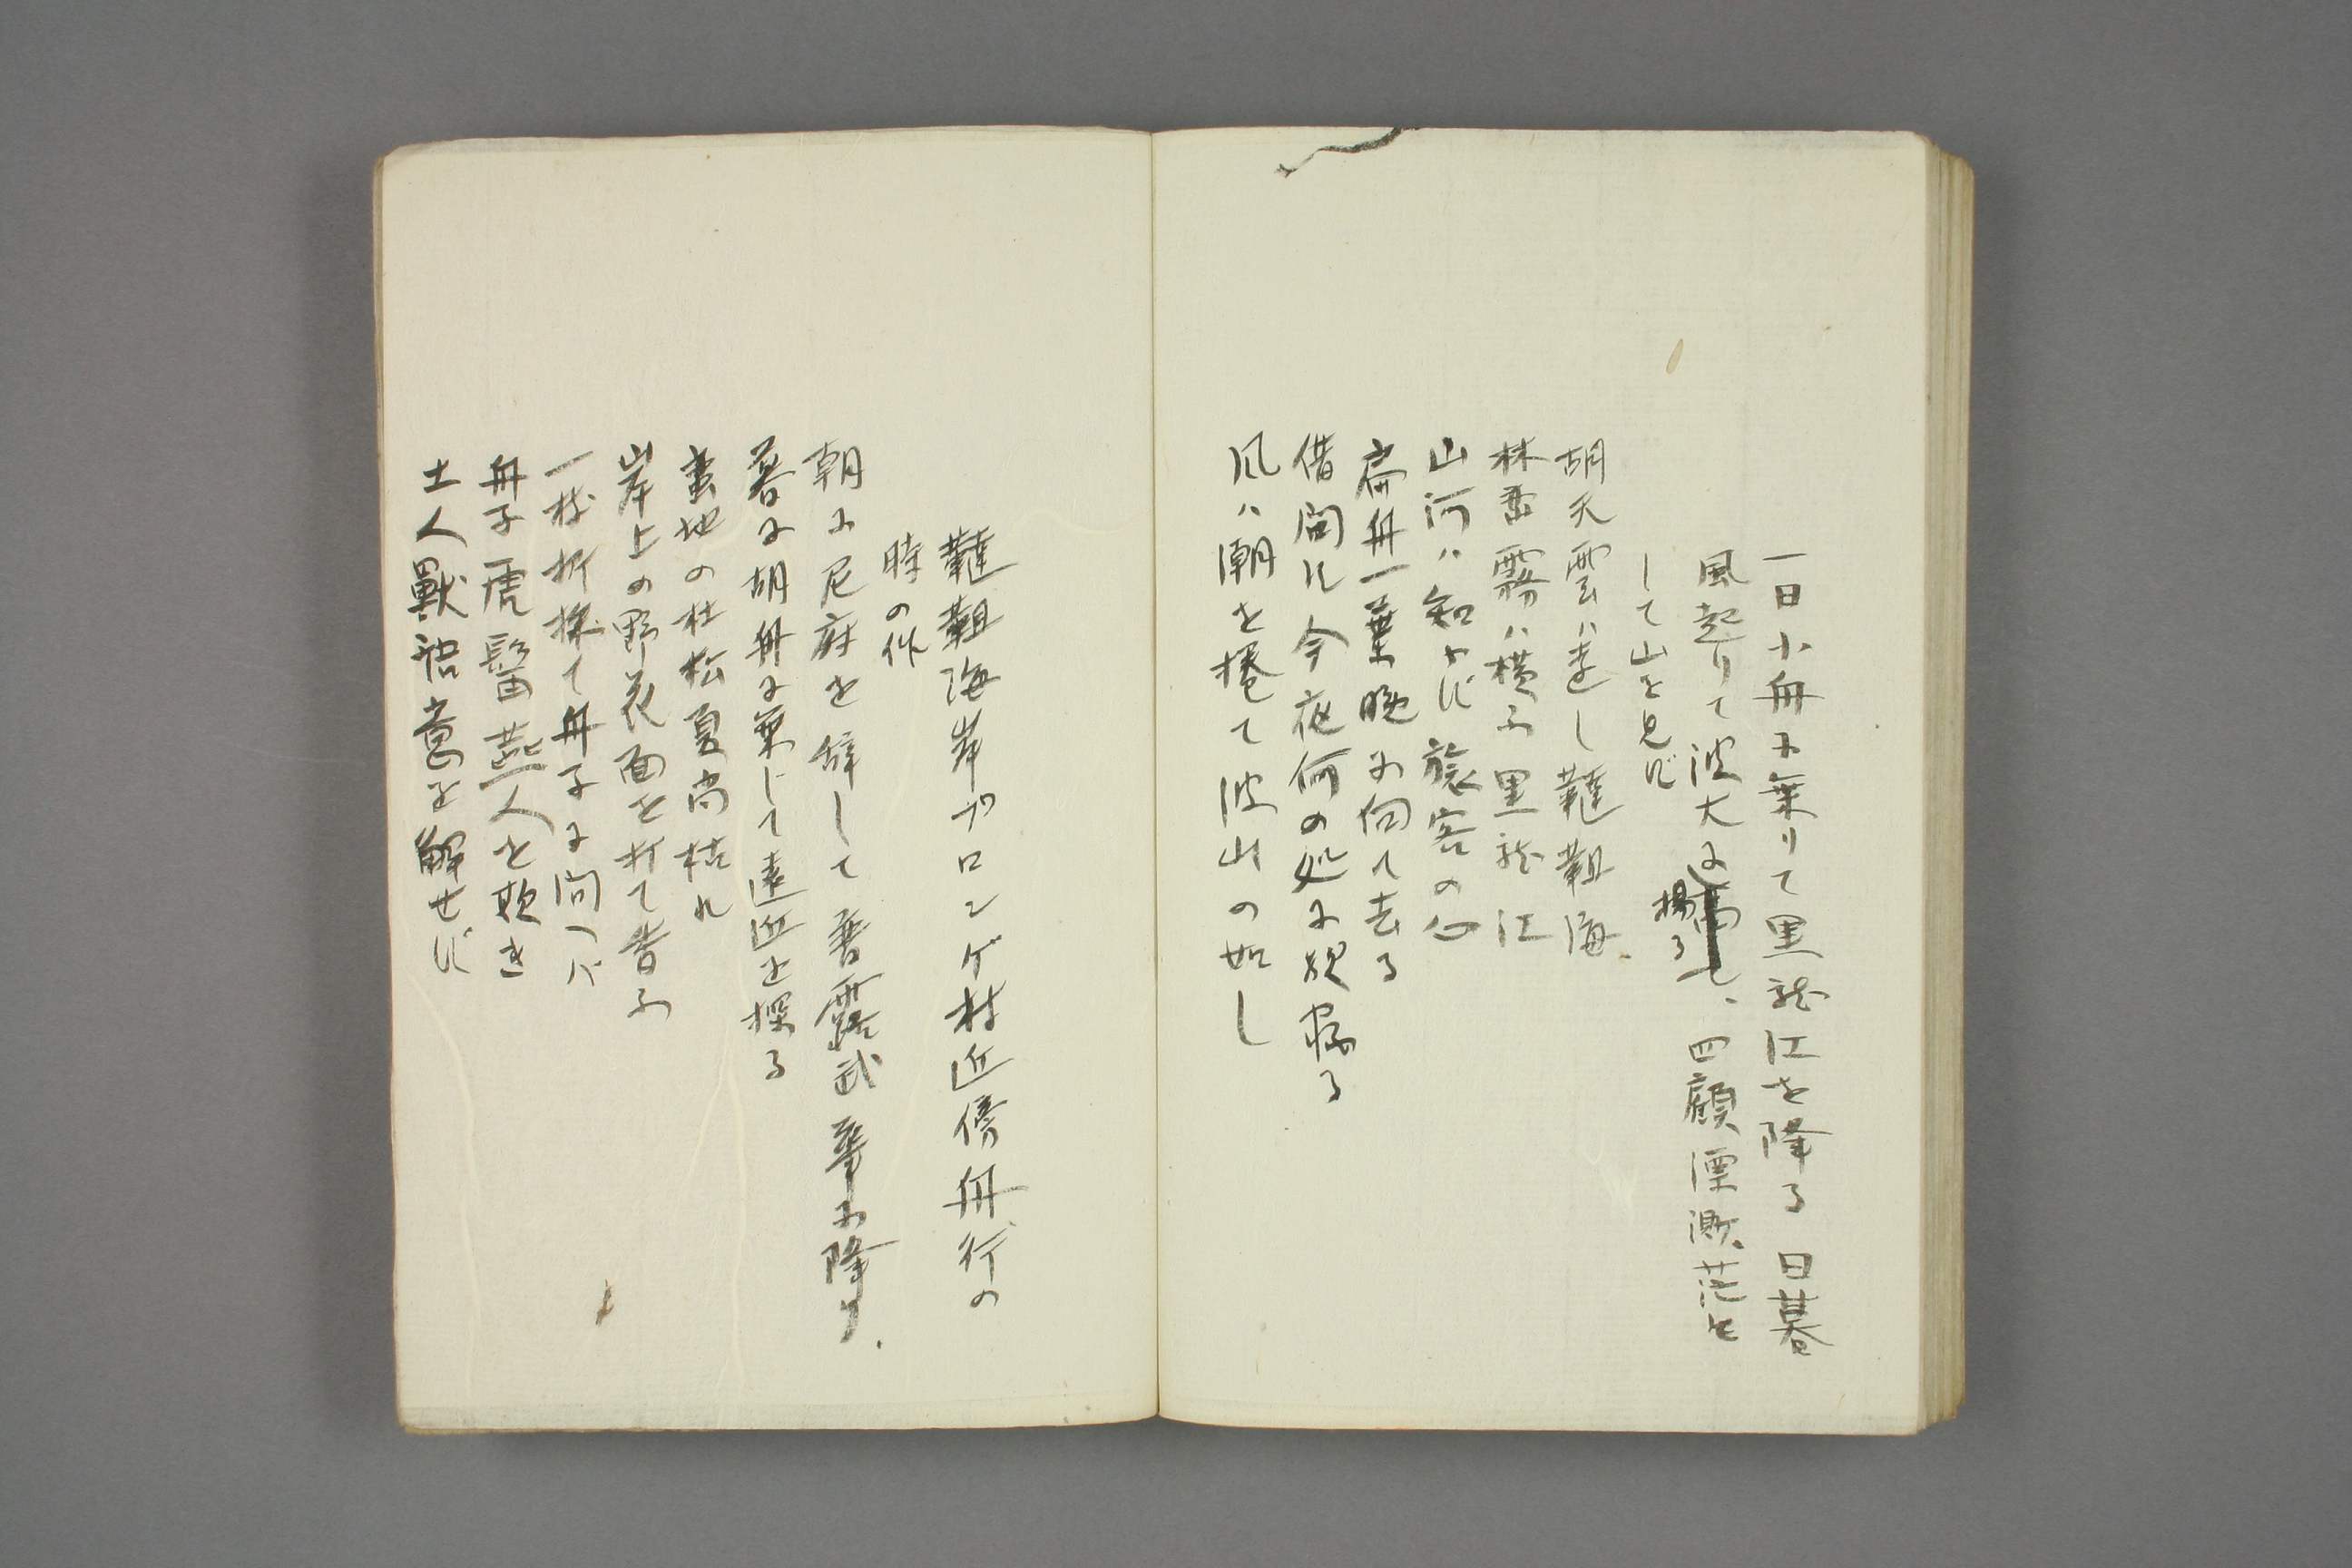 一日小舟に乗りて黒龍江を降る 日暮
風起りて波大に揚る、四顧漂渺茫々
して山を見ず
胡天雲ハ遠し韃靼海
林巒霧ハ横ふ黒龍江
山河ハ知らず旅客の心
扁舟一葉暁に向て去る
借問す今夜何の処に寝る
風ハ潮を捲て波山の如し
韃靼海岸プロンゲ村近傍舟行の
時の作
朝に尼府を辞して普露武華に降り
暮に胡舟に乗じて遠近を探る
蛮地の杜松夏尚枯れ
岸上の野花面を打て昔ふ
一枝折採て舟子に問へバ
舟子虎髯燕人を欺き
土人獣語意を解せず